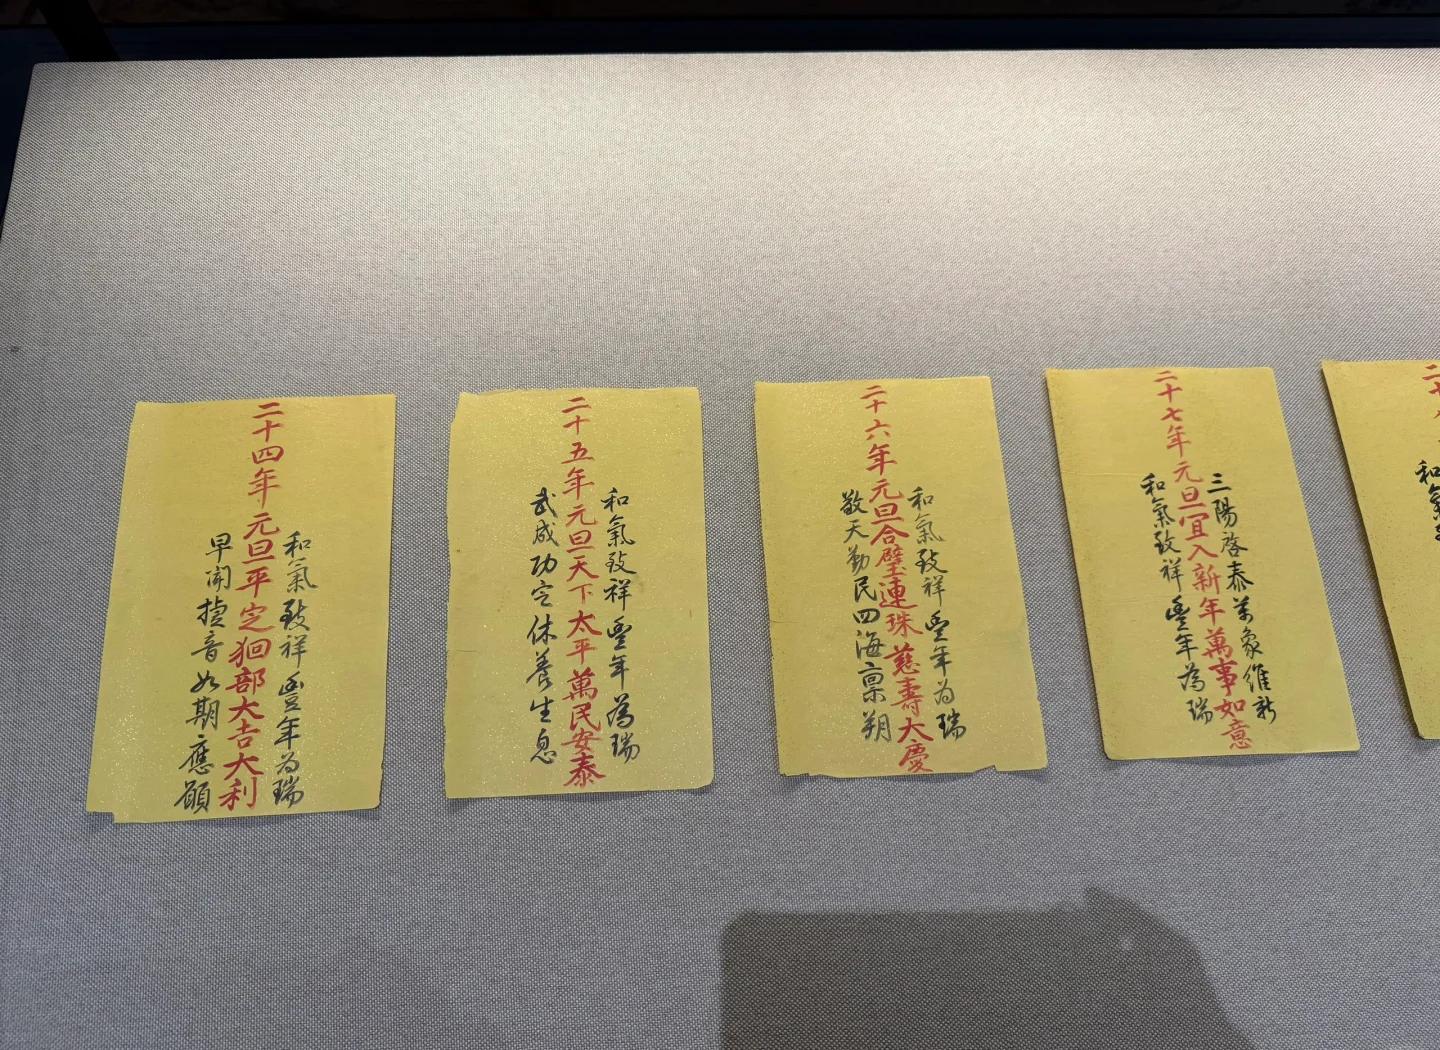 二十四年元旦平定狪部大吉大利
和氣致祥豐年为瑞
早聞捷音如期應願
二十五年元旦天下太平萬民安泰
和氣致祥豐年為瑞
武成功定休養生息
二十六年元旦合璧連珠慈壽大慶
和氣致祥豐年为瑞
敬天勤民四海禀朔
二十七年元旦宜入新年萬事如意
三陽啓泰萬象維新
和氣致祥豐年為瑞
二十八
和氣致